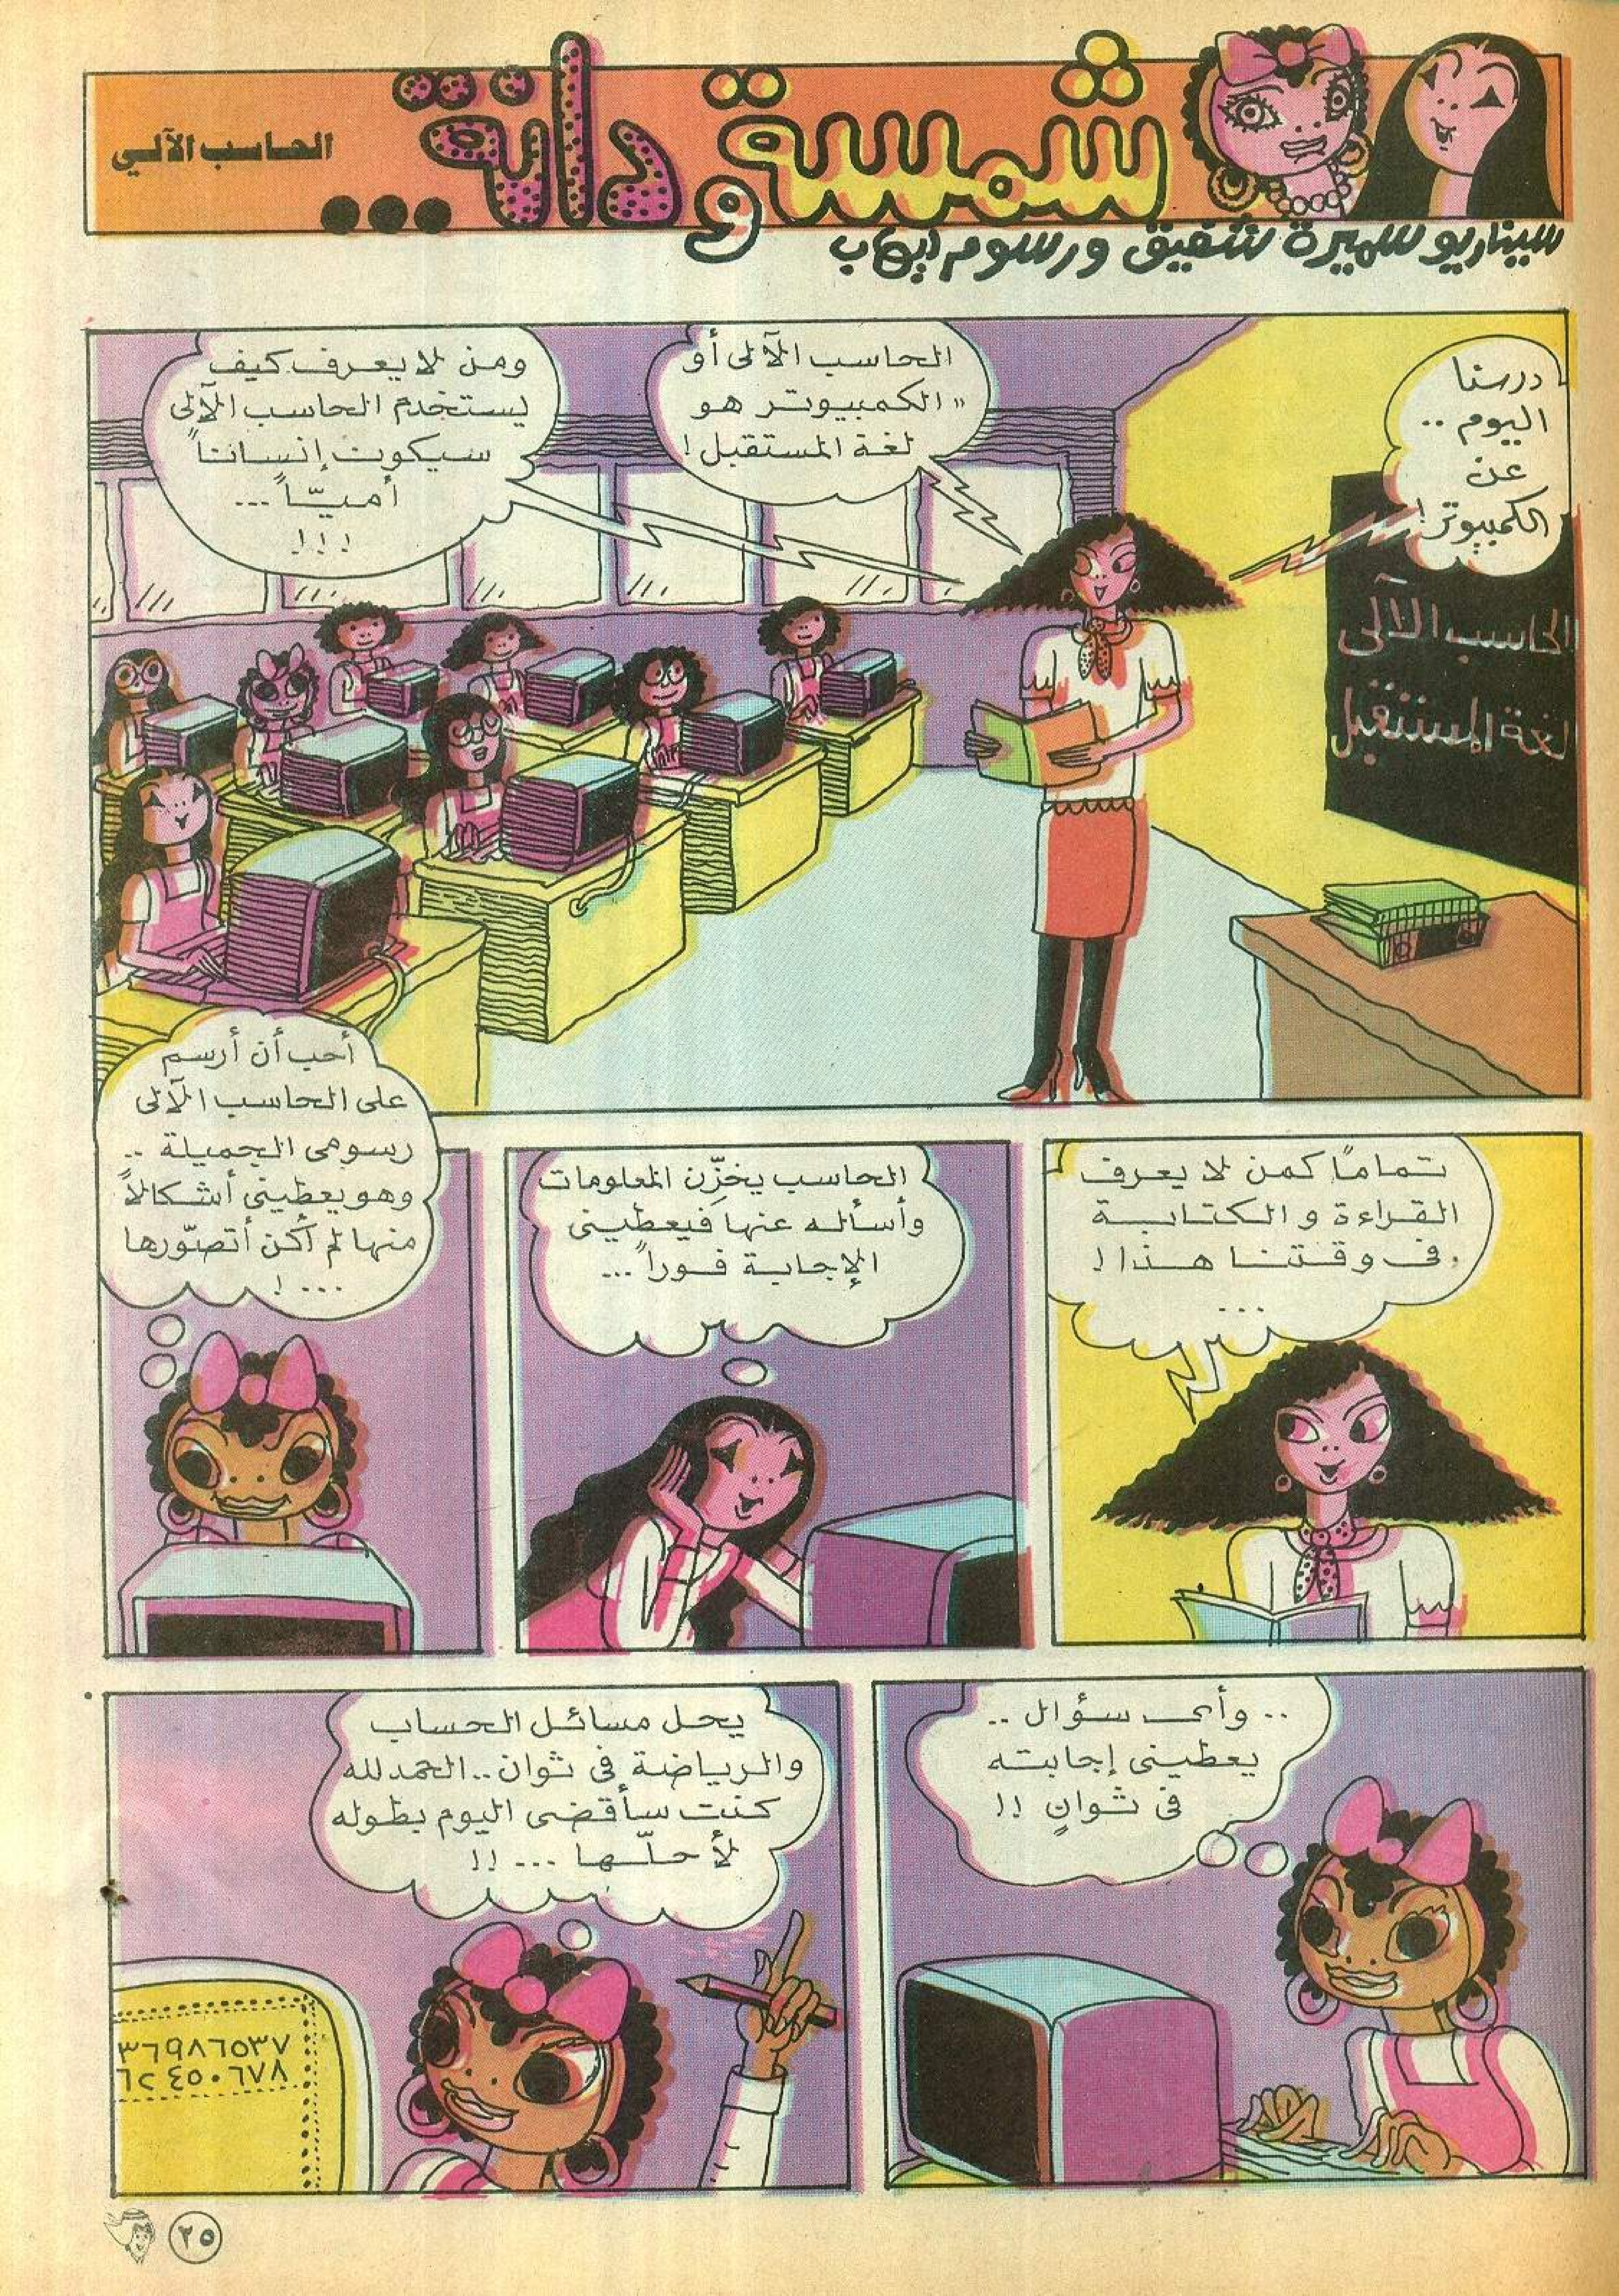 شمسة و دانة...
الحاسب الآلي
سيناريو سميرة شفيق ورسوم إيهاب
درسنا
اليوم ..
عن
الكمبيوتر!
الحاسب الآلى أو
"الكمبيوتر هو
لغة المستقبل!
ومن لا يعرف كيف
يستخدم الحاسب الآلى
سيكون إنساناً
أميّاً ...
!!!
الحاسب الآلى
لغة المستقبل
تماماً كمن لا يعرف
القراءة والكتابة
فى وقتنا هذا!
...
الحاسب يخزِّن المعلومات
وأسأله عنها فيعطينى
الإجابة فوراً ...
أحب أن أرسم
على الحاسب الآلى
رسومى الجميلة ..
وهو يعطينى أشكالاً
منها لم أكن أتصوّرها
... !
.. وأى سؤال ..
يعطينى إجابته
فى ثوانٍ !!
يحل مسائل الحساب
والرياضة فى ثوان .. الحمد لله
كنت سأقضى اليوم بطوله
لأحلّها ... !!
٣٦٩٨٦٥٣٧
٦٢٤٥٠٦٧٨
٢٥